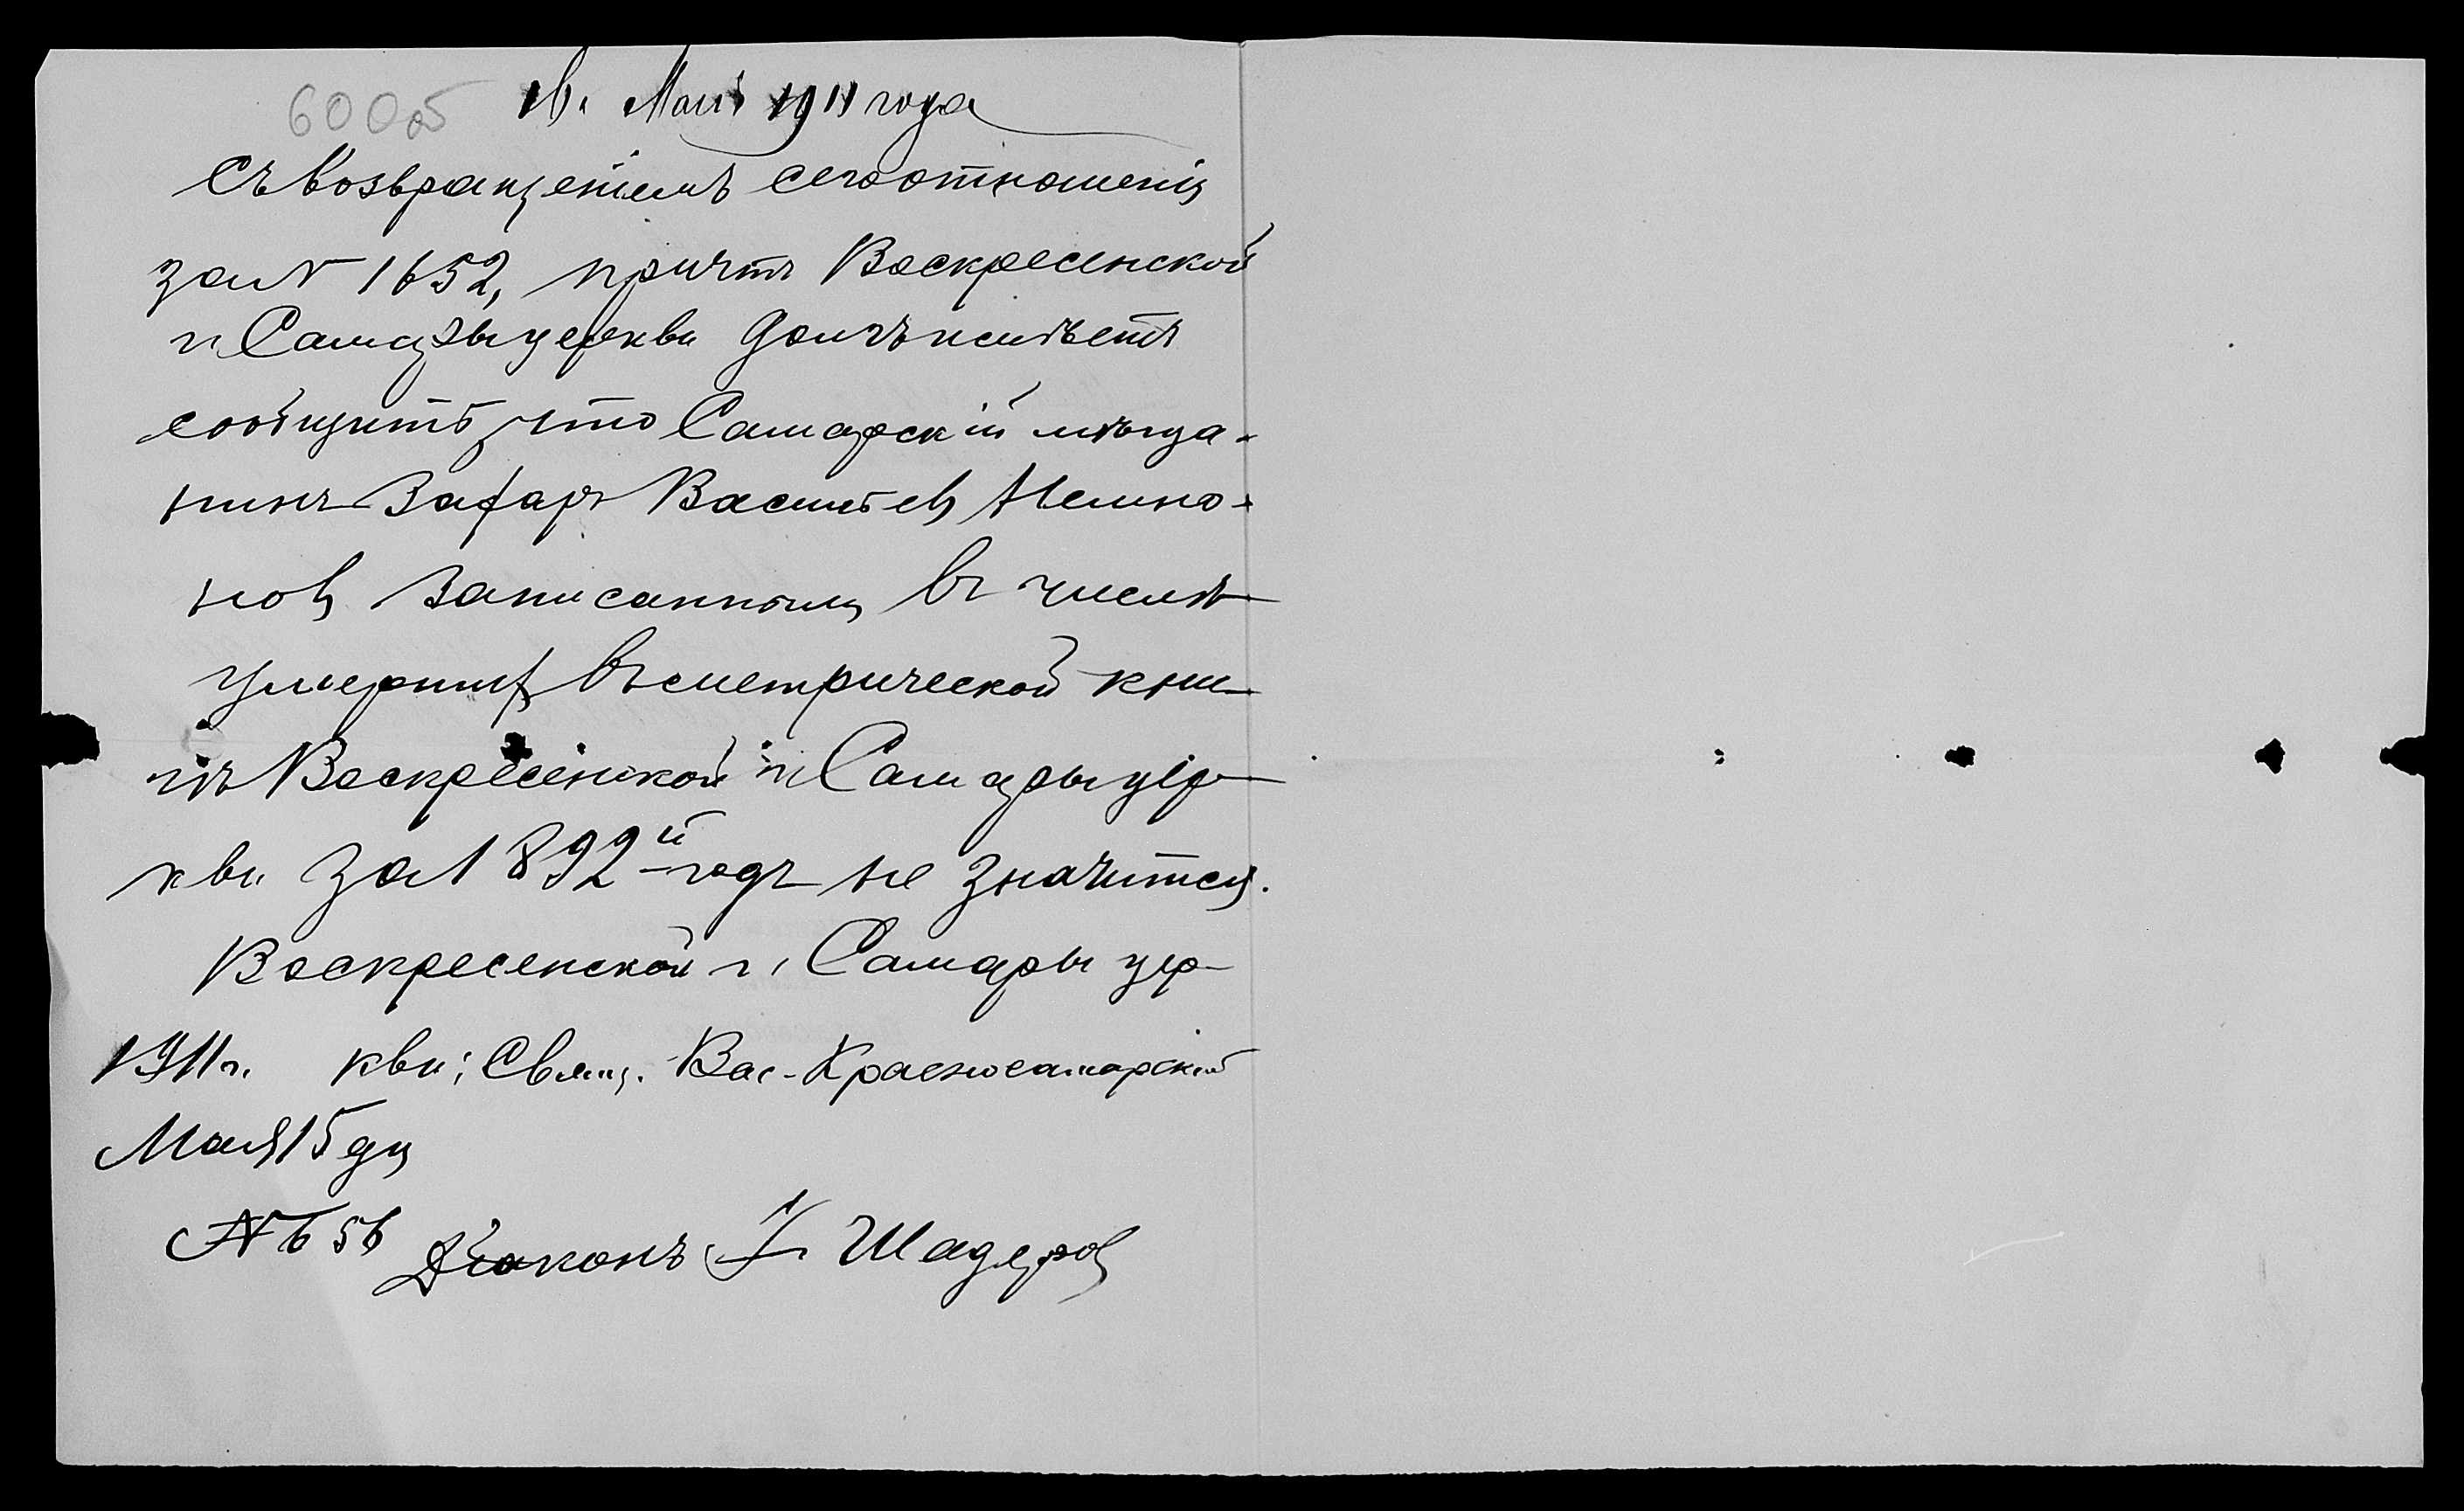 600об
16. Мая 1911 года
Съ возвращеніемъ сего отношенія
за N 1652, причтъ Воскресенской
г. Самары церкви долгъ имѣетъ
сообщить, что Самарскій мѣща-
нинъ Захаръ Васильевъ
записаннымъ въ числѣ
умершихъ въ метрической кни-
гѣ Воскресенской г. Самары цер-
кви за 1892й годъ не значится.
Воскресенской г. Самары цер-
1911 г. кви: Свящ. Вас. Красносамарскій
Мая 15 дня
№ 656 Діаконъ І. Шадровъ